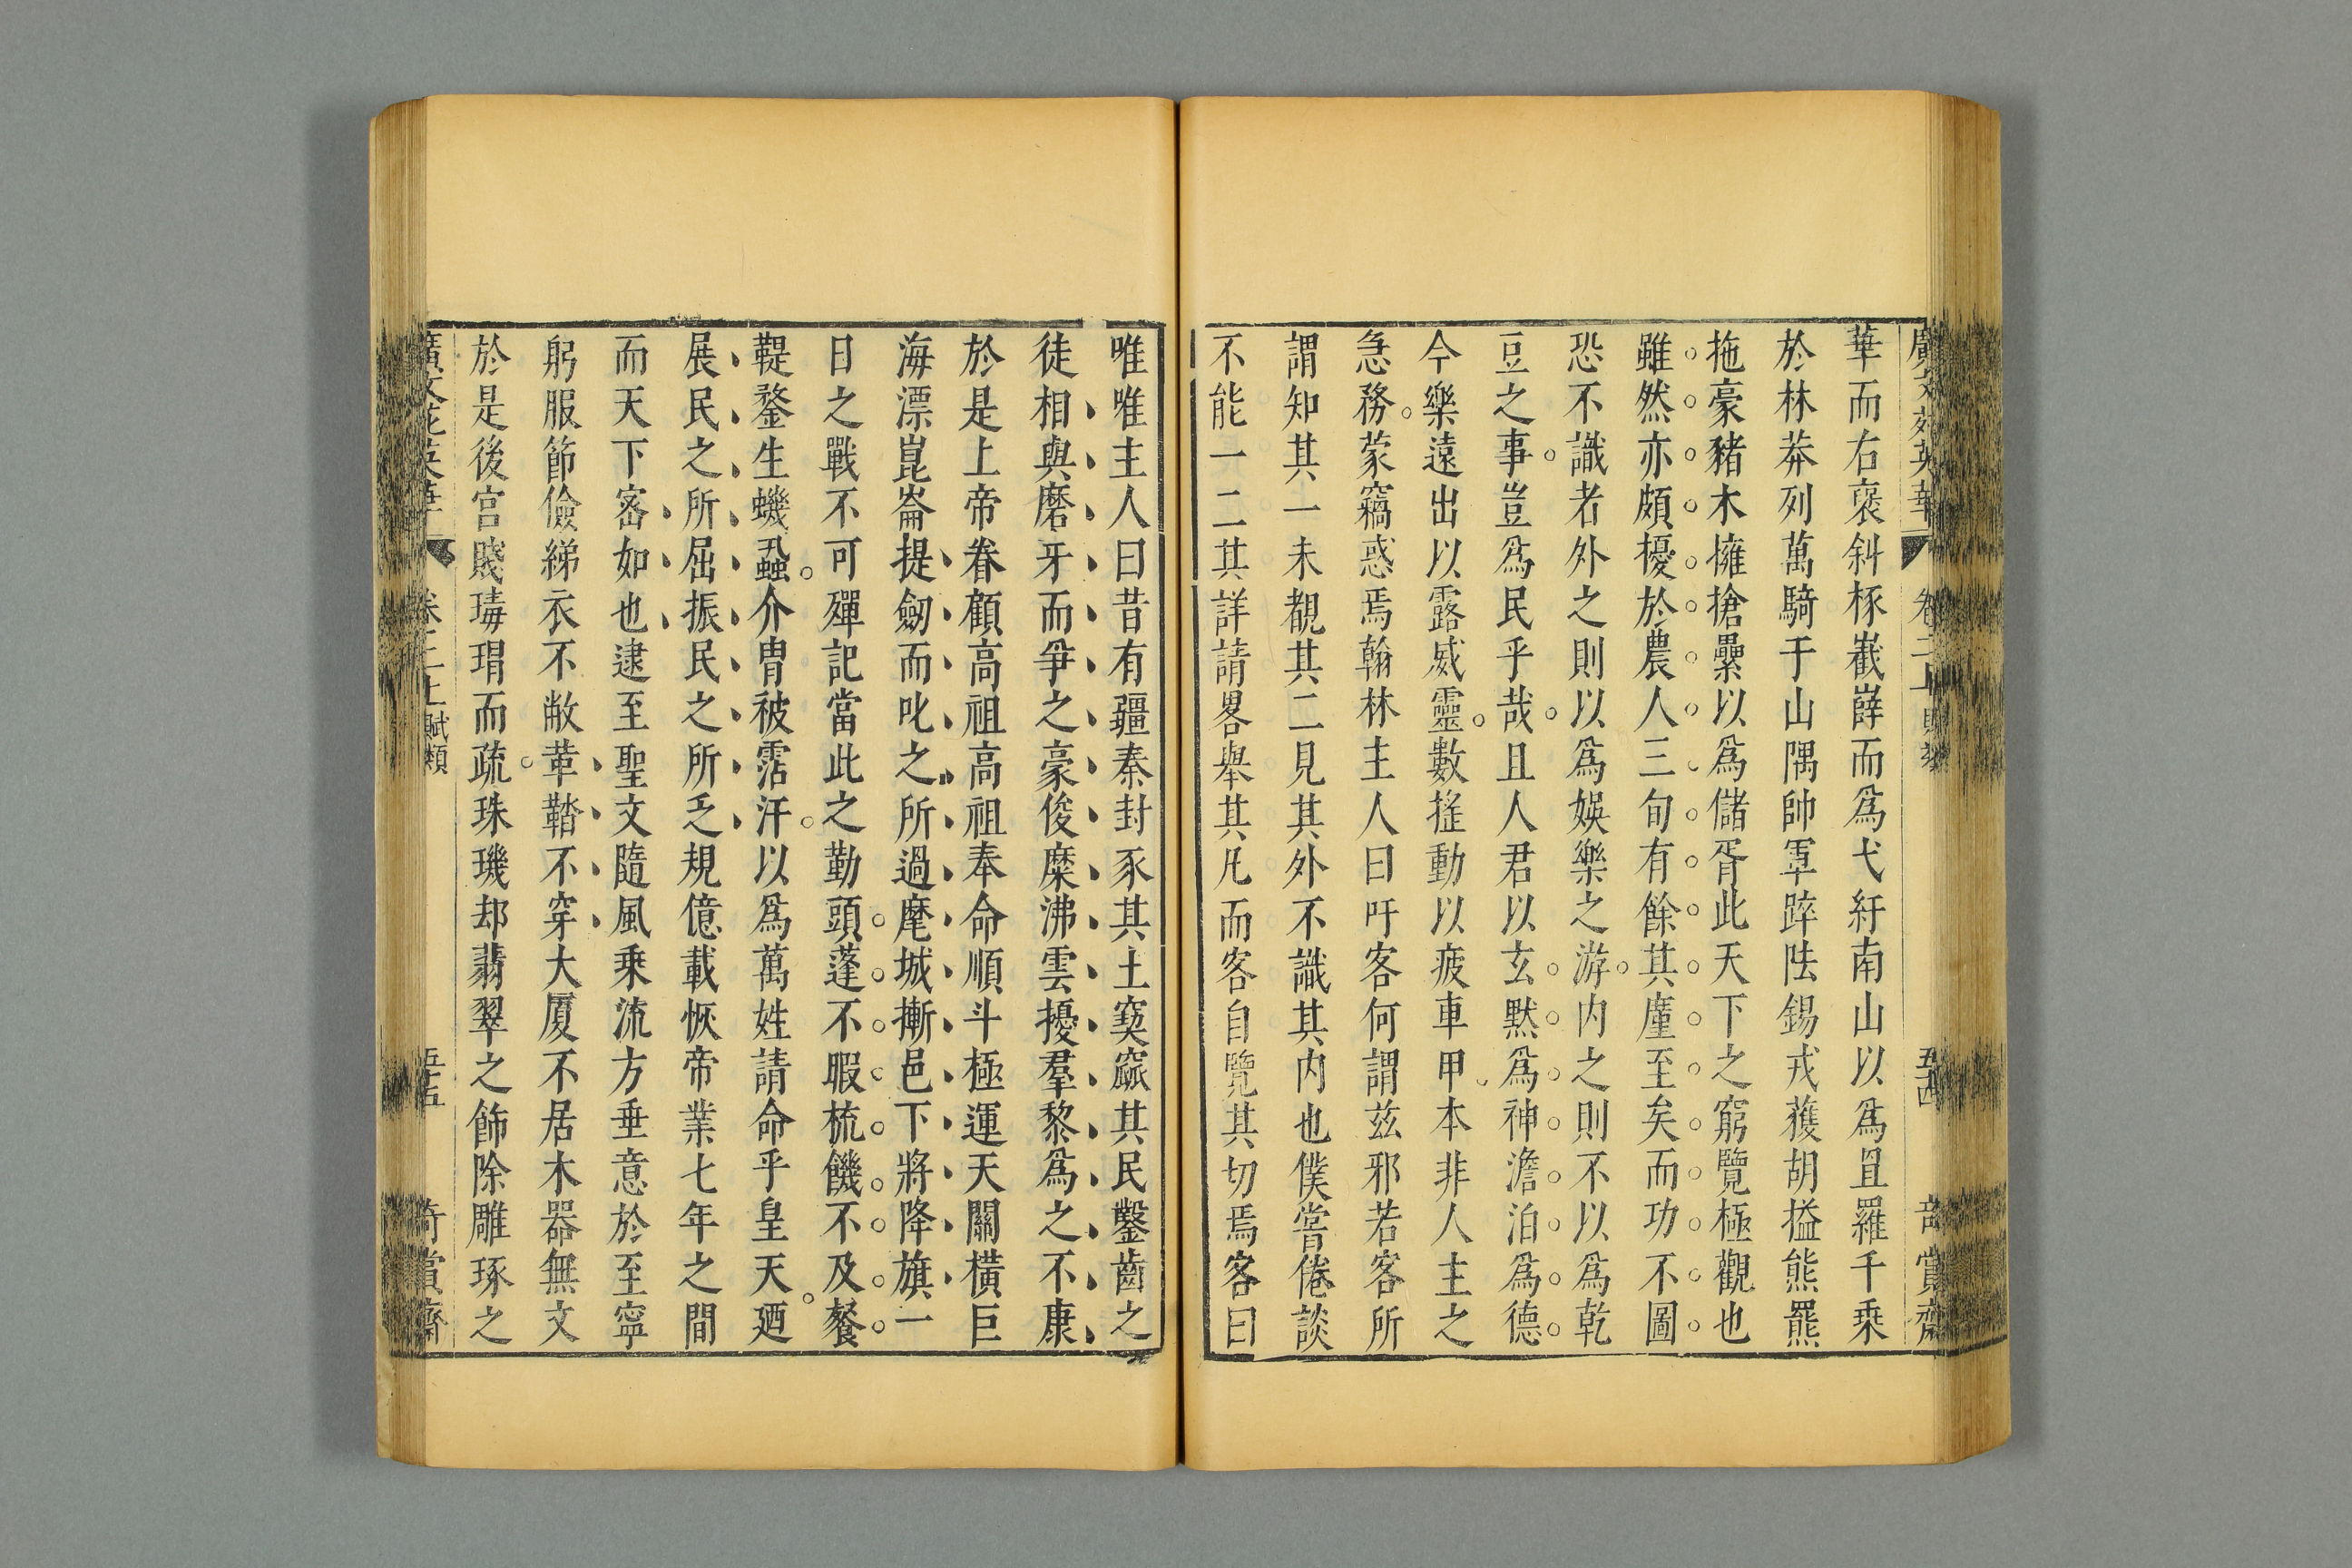 廣文苑英華 卷二上 賦類 五十四 奇賞齋
華而右褒斜椓嶻嶭而爲弋紆南山以爲罝羅千乗
於林莽列萬騎于山隅帥軍踤阹錫戎獲胡搤熊羆
拖豪豬木擁搶纍以爲儲胥此天下之窮覽極觀也
雖然亦頗擾於農人三旬有餘其廑至矣而功不圖
恐不識者外之則以爲娛樂之游内之則不以爲乾
豆之事豈爲民乎哉且人君以玄默爲神澹泊爲德
今樂遠出以露威靈數搖動以疲車甲本非人主之
急務蒙竊惑焉翰林主人曰吁客何謂茲邪若客所
謂知其一未覩其二見其外不識其内也僕嘗倦談
不能一二其詳請畧舉其凡而客自覽其切焉客曰
唯唯主人曰昔有疆秦封豕其土窫窳其民鑿齒之
徒相與磨牙而爭之豪俊糜沸雲擾羣黎爲之不康
於是上帝眷顧高祖高祖奉命順斗極運天關橫巨
海漂崑崙提劒而叱之所過麾城摲邑下將降旗一
日之戰不可殫記當此之勤頭蓬不暇梳饑不及餐
鞮鍪生蟣蝨介冑被霑汗以爲萬姓請命乎皇天廼
展民之所屈振民之所乏規億載恢帝業七年之間
而天下宻如也逮至聖文隨風乗流方垂意於至寧
躬服節儉綈衣不敝革鞜不穿大厦不居木器無文
於是後宫賤瑇瑁而疏珠璣却翡翠之飾除雕琢之
廣文苑英華 卷二上 賦類 五十五 奇賞齋